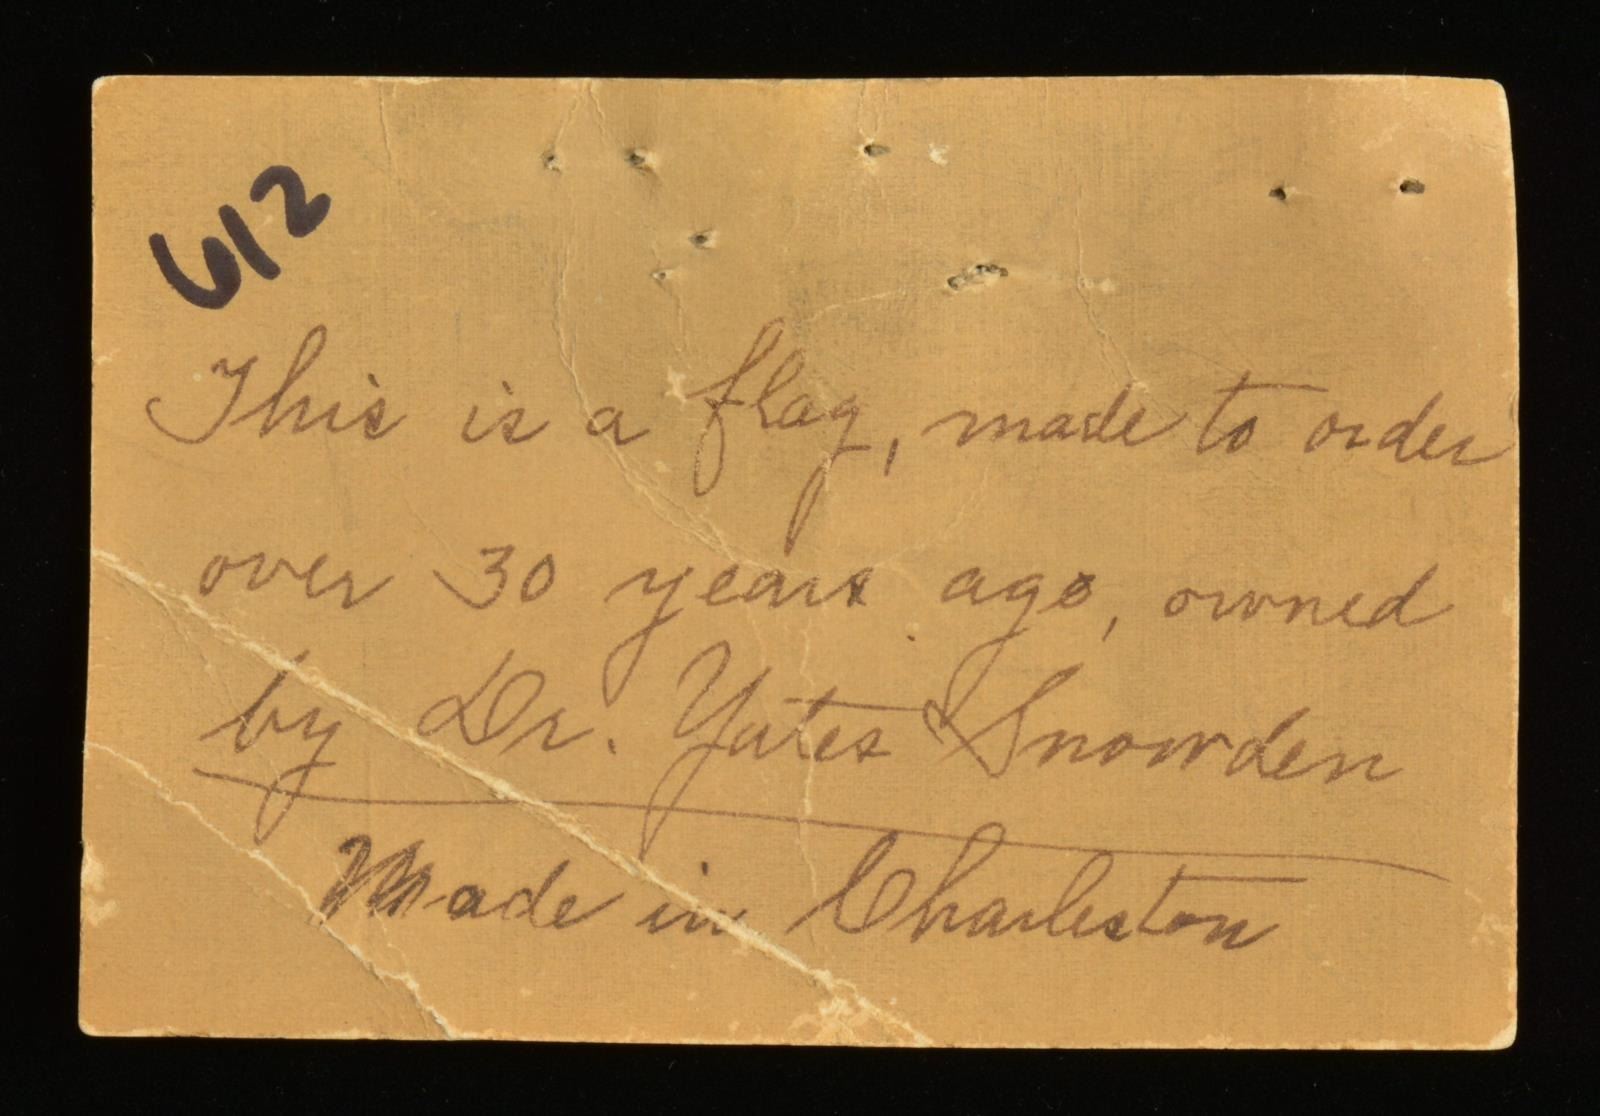 612
This is a flag, made to order
over 30 years ago, owned
by Dr. Yates Snowden
Made in Charleston